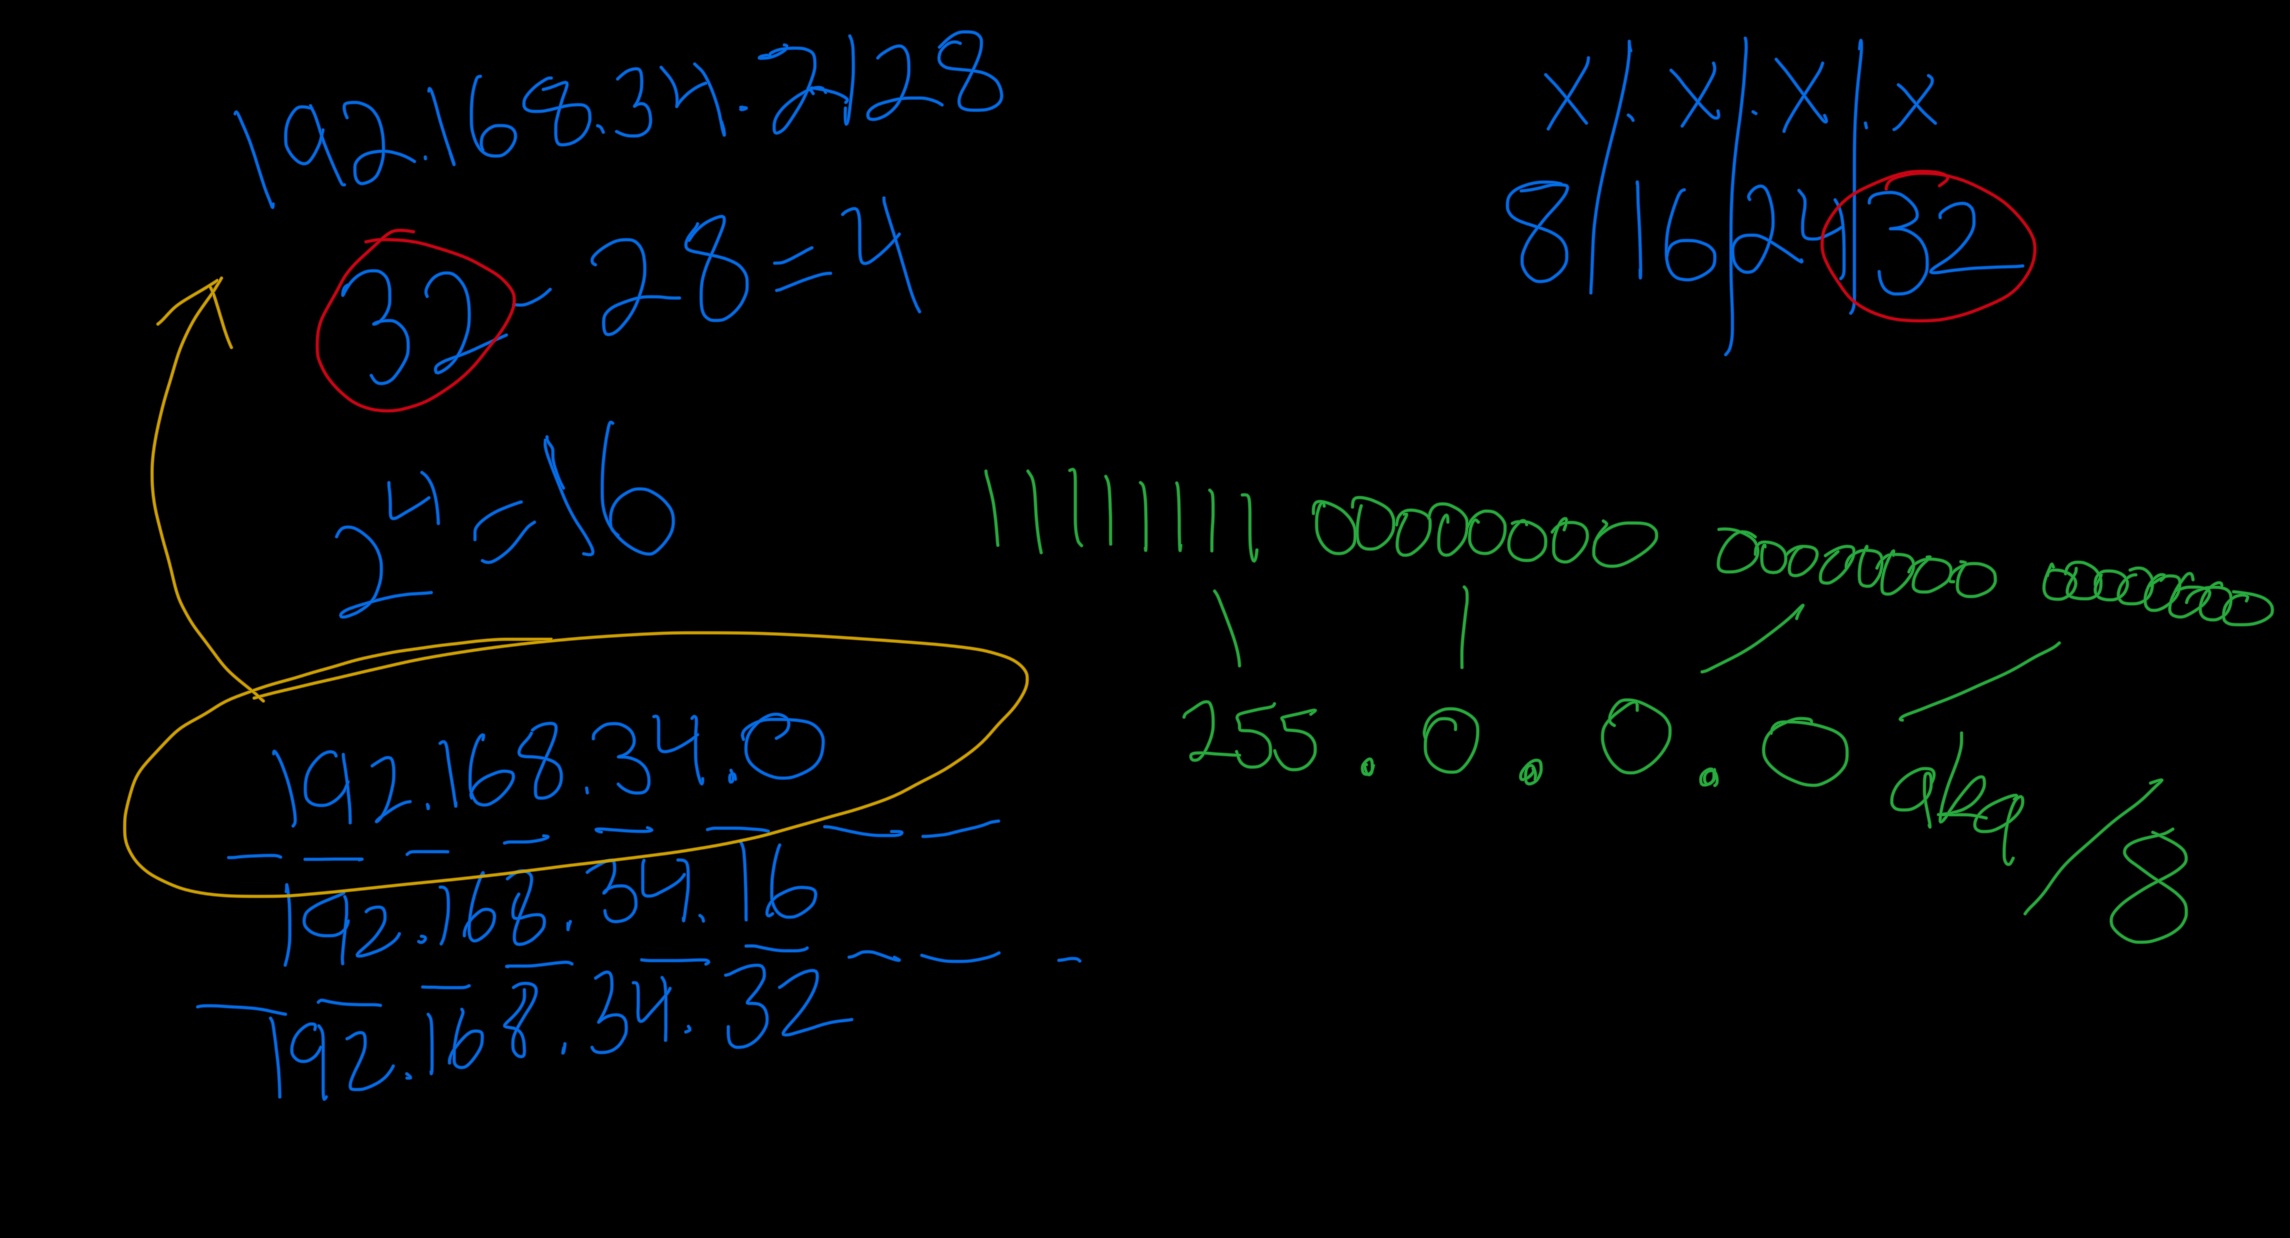 192.168.34.2/28
32 - 28 = 4
2^4 = 16
192.168.34.0
192.168.34.16
192.168.34.32
x . x . x . x
8 | 16 | 24 | 32
11111111 00000000 00000000 00000000
255 . 0 . 0 . 0
aka /8